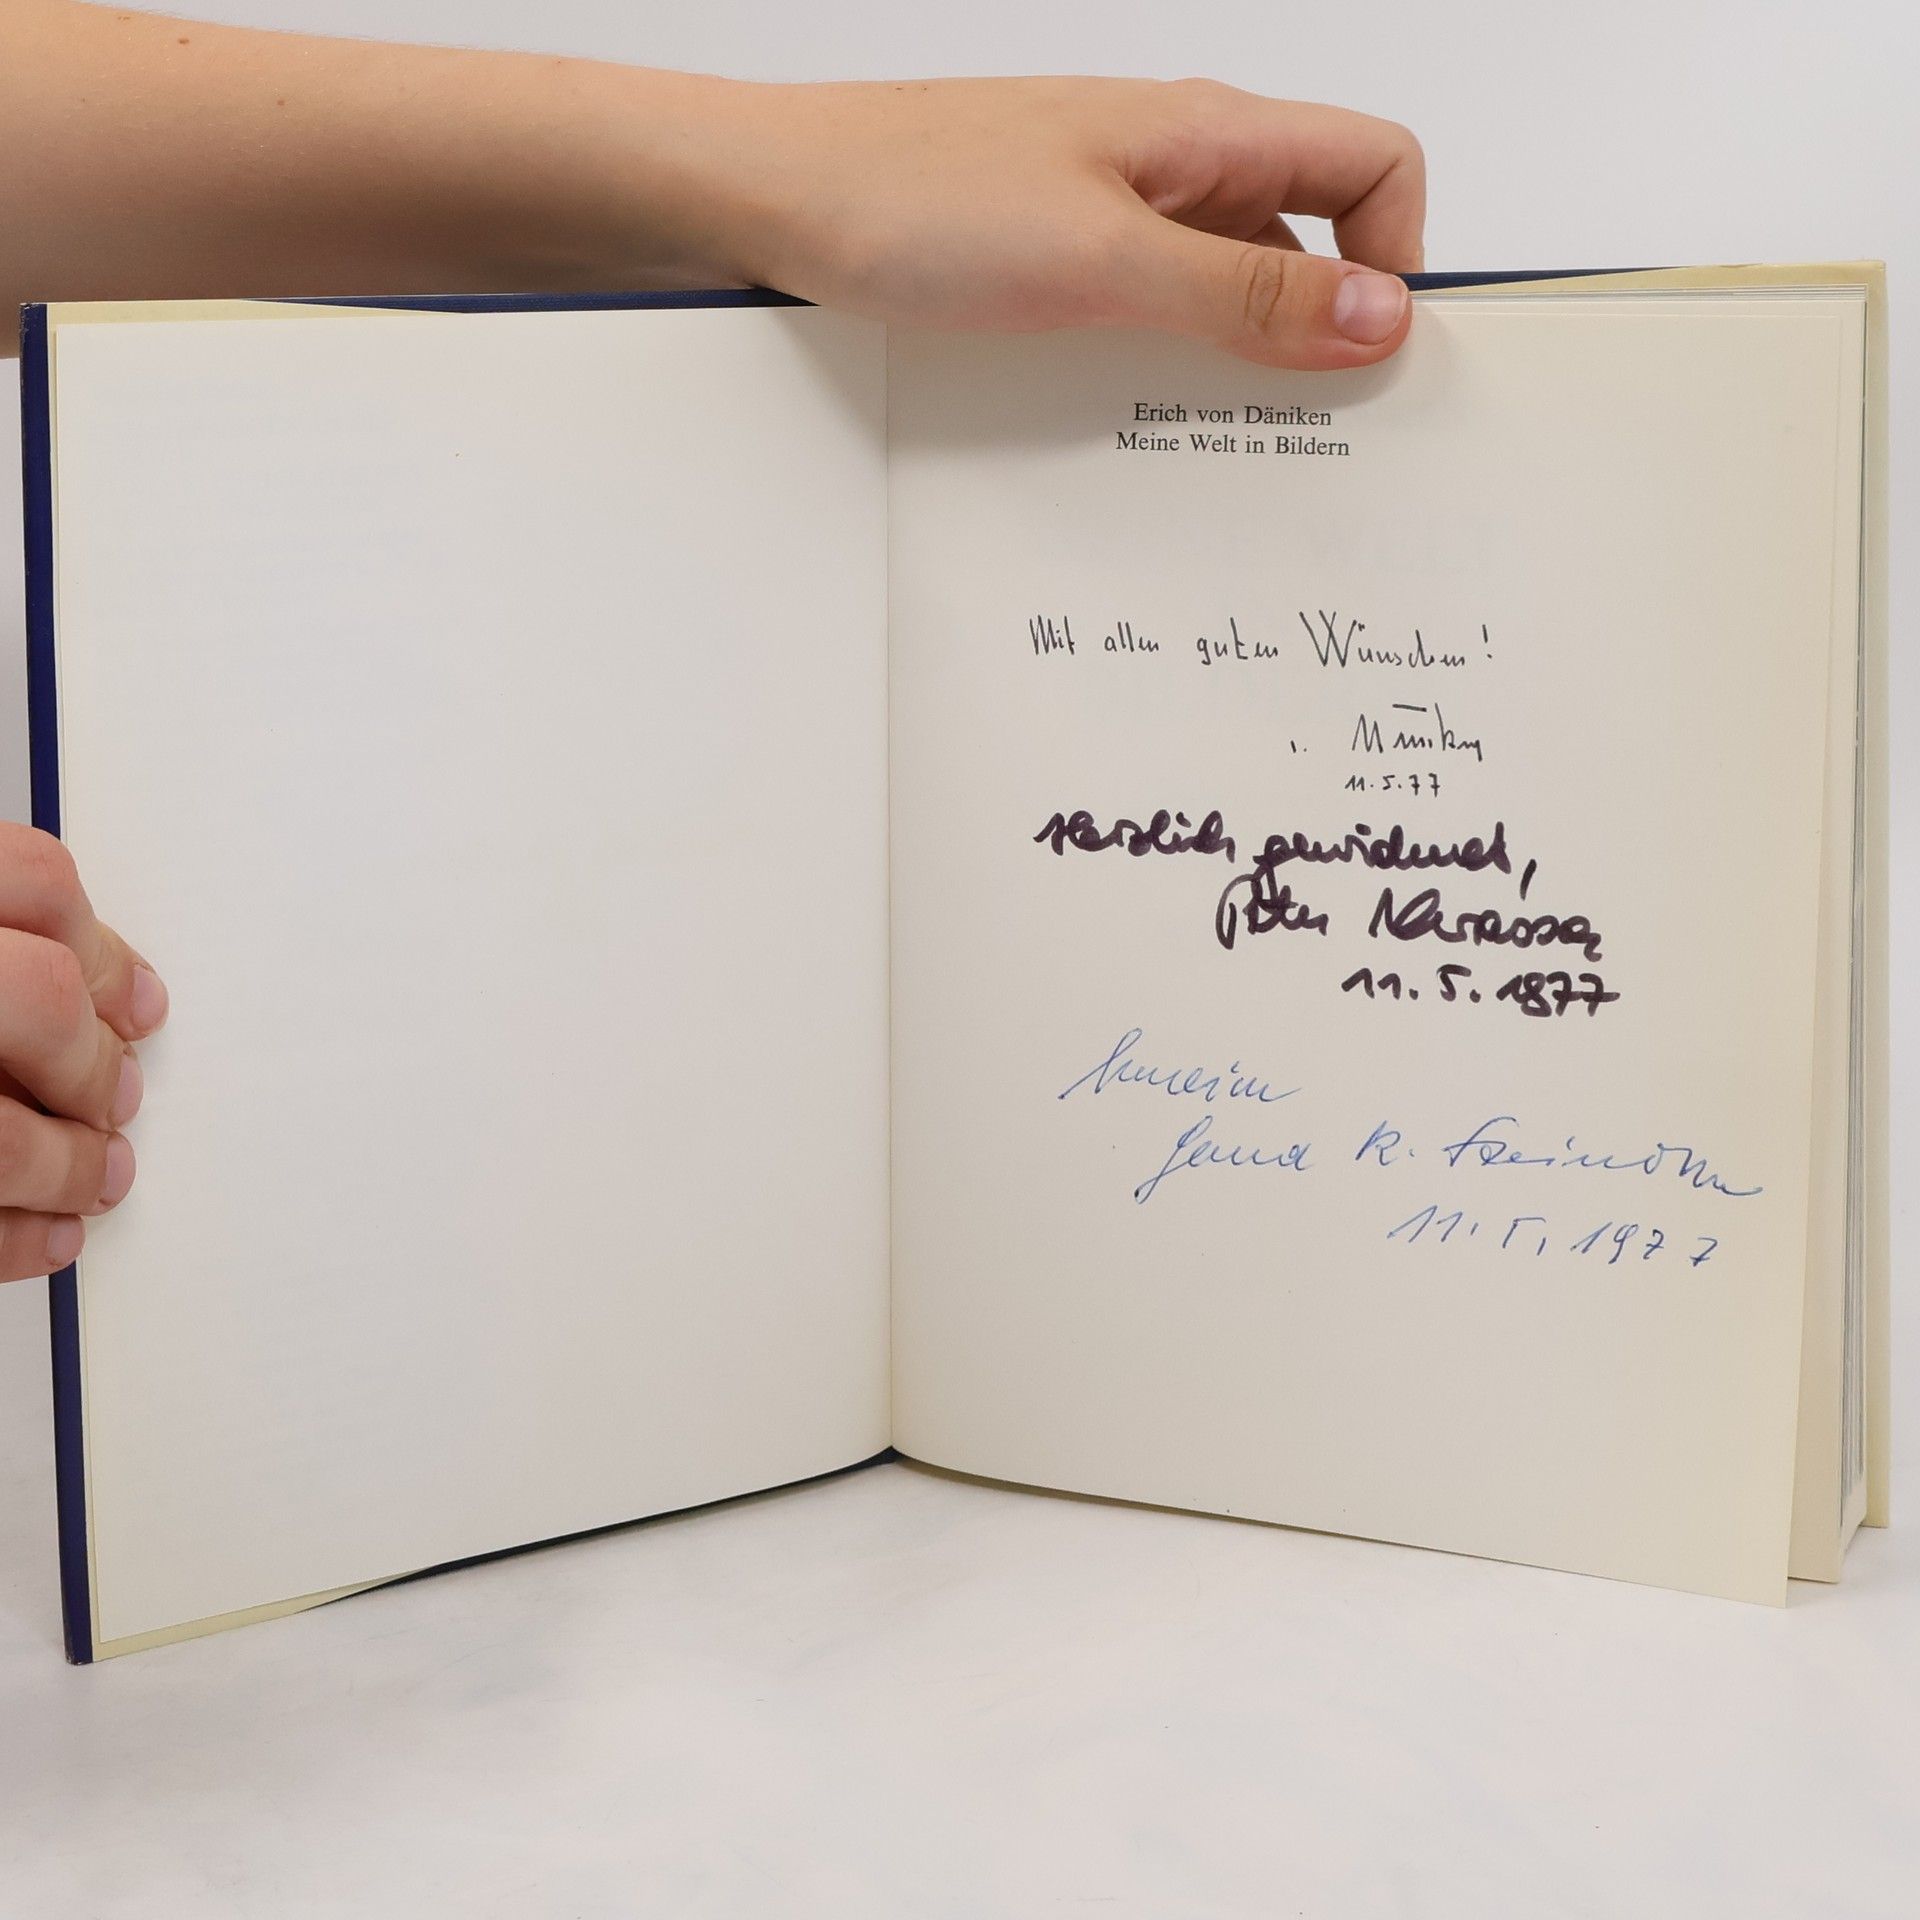 Erich von Däniken
Meine Welt in Bildern
Mit allen guten Wünschen!
11.5.77
Herzlich gewidmet,
Peter Krassa
11. 5. 1977
R.
11. 5. 1977